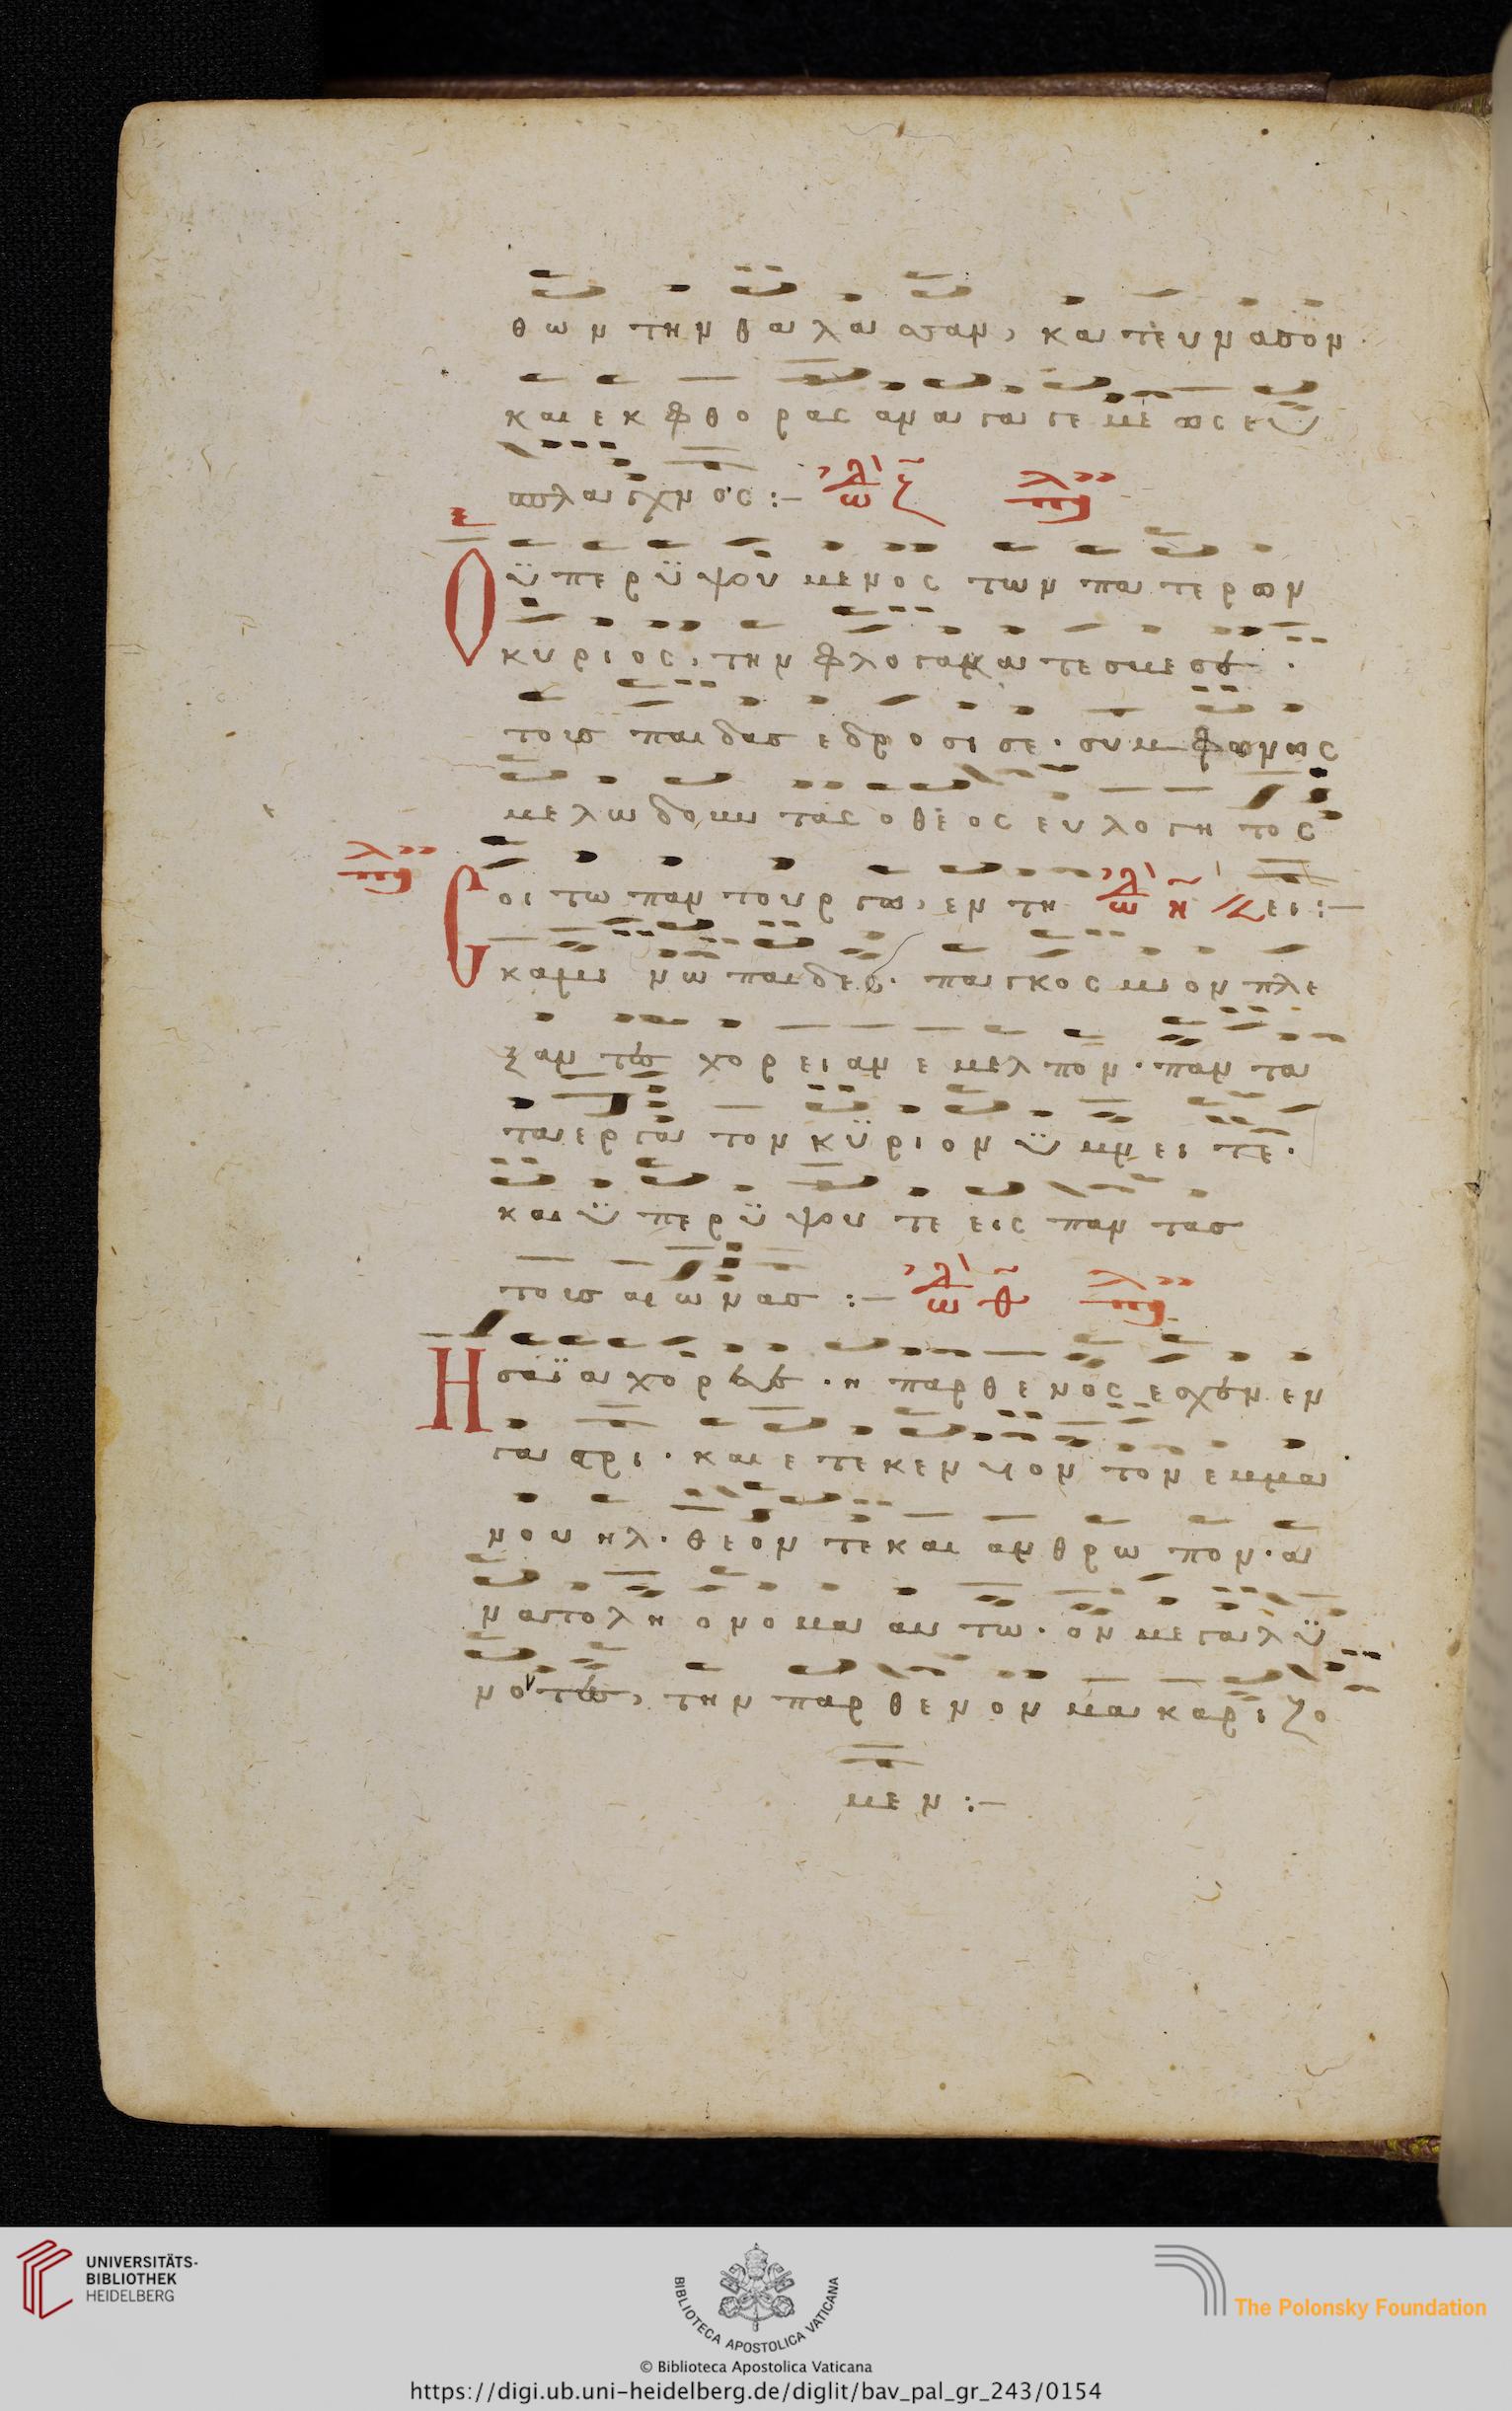 θων την θαλασσαν, και πευμασον
και εκ φθορας αναγαγε με ως ευ
σπλαγχνος :– ὠδὴ ζ̄
Ο ϋπερϋψουμενος των πατερων
κυριος, την φλογα κατεσβεσε.
τους παιδας εδροσισε. συμφωνως
μελωδουντας ο θεος ευλογητος
ει :–
Σοι τω παντουργω, εν τη ὠδὴ η̄
καμινω παιδες. παγκοσμιον πλε
ξαντες χορειαν εμελπον. παντα
τα εργα τον κϋριον ϋμνειτε.
και ϋπερϋψουτε εις παντας
τους αιωνας :– ὠδὴ θ̄
Ησαϊα χορευε. η παρθενος εσχεν εν
γαστρι. και ετεκεν υιον τον εμμα
νουηλ. θεον τε και ανθρωπον. α
νατολη ονομα αυτω. ον μεγαλϋ
νοντες, την παρθενον μακαριζο
μεν :–
UNIVERSITÄTS-
BIBLIOTHEK
HEIDELBERG
BIBLIOTECA APOSTOLICA VATICANA
The Polonsky Foundation
© Biblioteca Apostolica Vaticana
https://digi.ub.uni-heidelberg.de/diglit/bav_pal_gr_243/0154